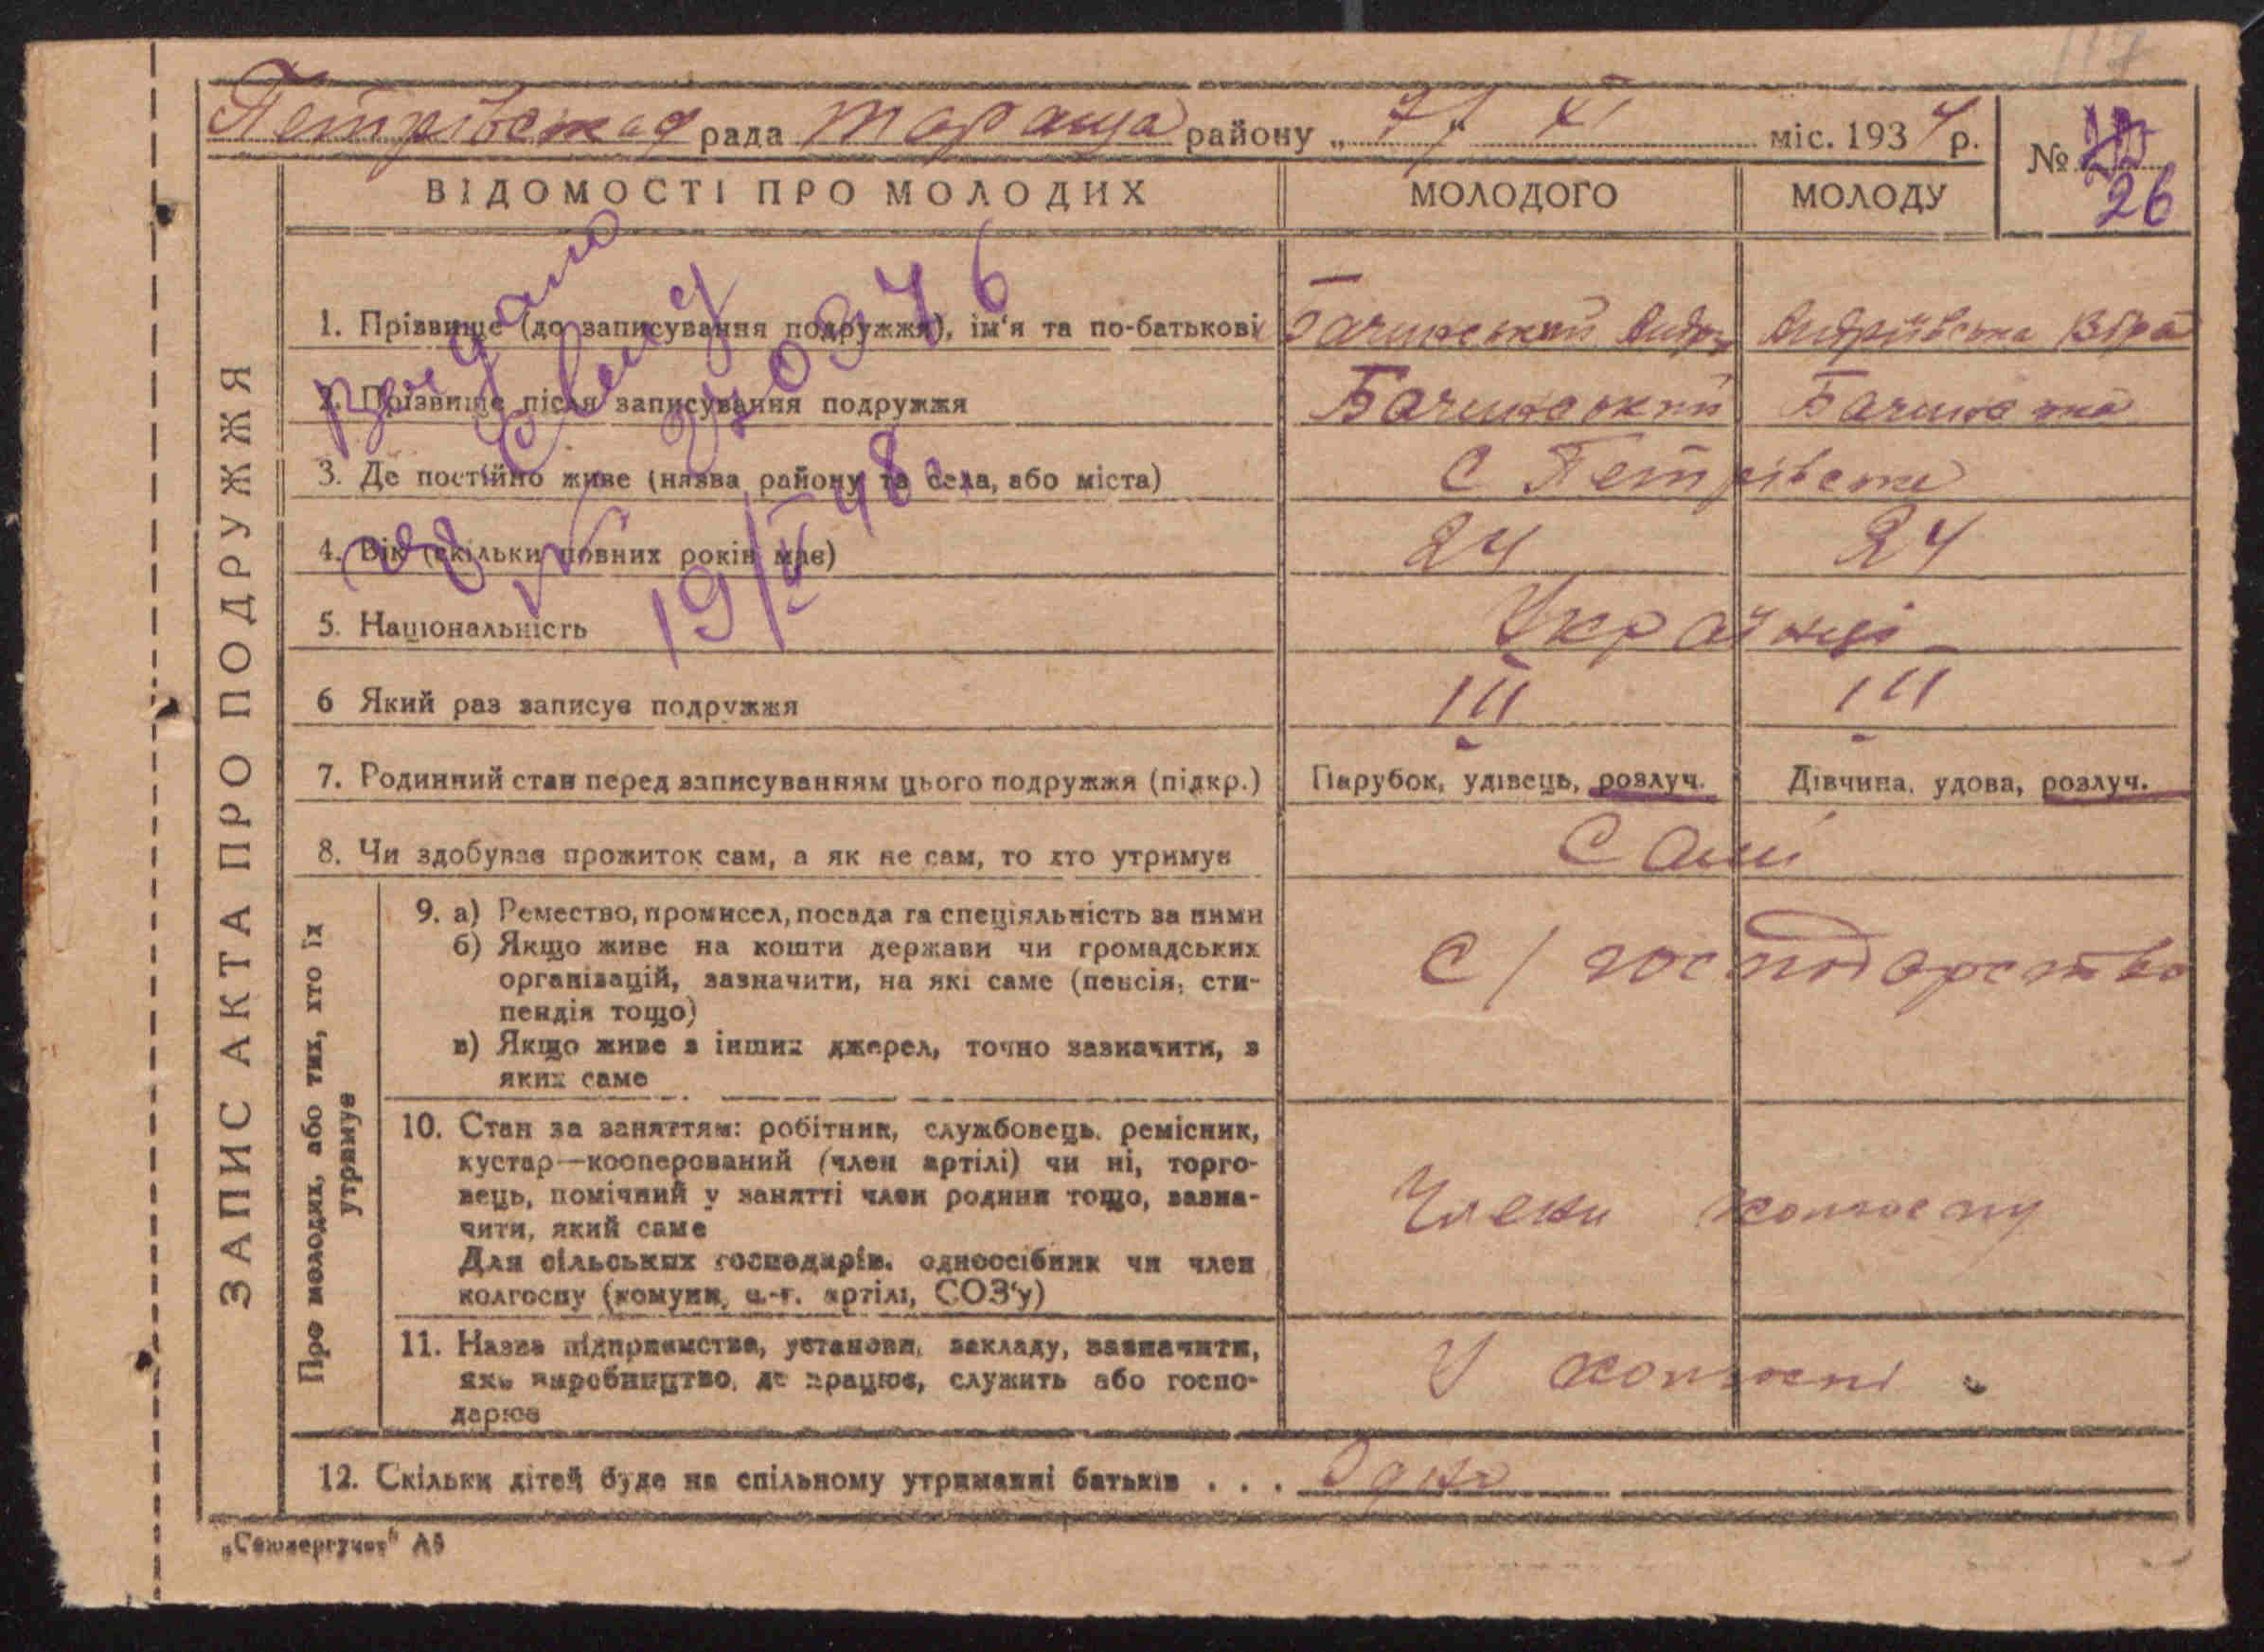 117
Петрівська рада Тараща району „ 7 “ XI міс. 1934 р.
№ 26
ВІДОМОСТІ ПРО МОЛОДИХ МОЛОДОГО МОЛОДУ
1. Прізвище (до записування подружжя), ім'я та по-батькові Бачинський Андр Андріївська Віра
2. Прізвище після записування подружжя Бачинський Бачинська
3. Де постійно живе (назва району та села, або міста) С Петрівська
4. Вік (скільки повних років має) 24 24
5. Національність Українці
6 Який раз записує подружжя III III
7. Родинний стан перед записуванням цього подружжя (підкр.) Парубок, удівець, розлуч. Дівчина, удова, розлуч.
8. Чи здобуває прожиток сам, а як не сам, то хто утримує Самі
9. а) Ремество, промисел, посада та спеціяльність за ними С/господарство
б) Якщо живе на кошти держави чи громадських
організацій, зазначити, на які саме (пенсія, сти-
пендія тощо)
в) Якщо живе з інших джерел, точно зазначити, з
яких саме
10. Стан за заняттям: робітник, службовець, ремісник,
кустар—кооперований (член артілі) чи ні, торго-
вець, помічний у занятті член родини тощо, зазна-
чити, який саме
Члени колгоспу
Для сільських господарів. одноосібник чи член
колгоспу (комуни, с.-г. артілі, СОЗ'у)
11. Назва підприємства, установи, закладу, зазначити,
яке виробництво, де працює, служить або госпо-
дарює
У колгоспі
12. Скільки дітей буде на спільному утриманні батьків . . . Одно
ЗАПИС АКТА ПРО ПОДРУЖЖЯ
Про молодих, або тих, хто їх
утримує
видано
19/V 48